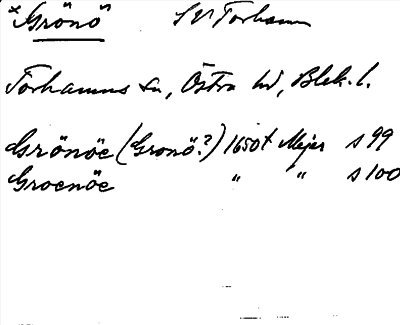 *Grönö SV Torhamn
Torhamns sn, Östra hd, Blek. l.
Grönöe (Gronö?) 1650t Mejer s 99
Groenöe " " s 100